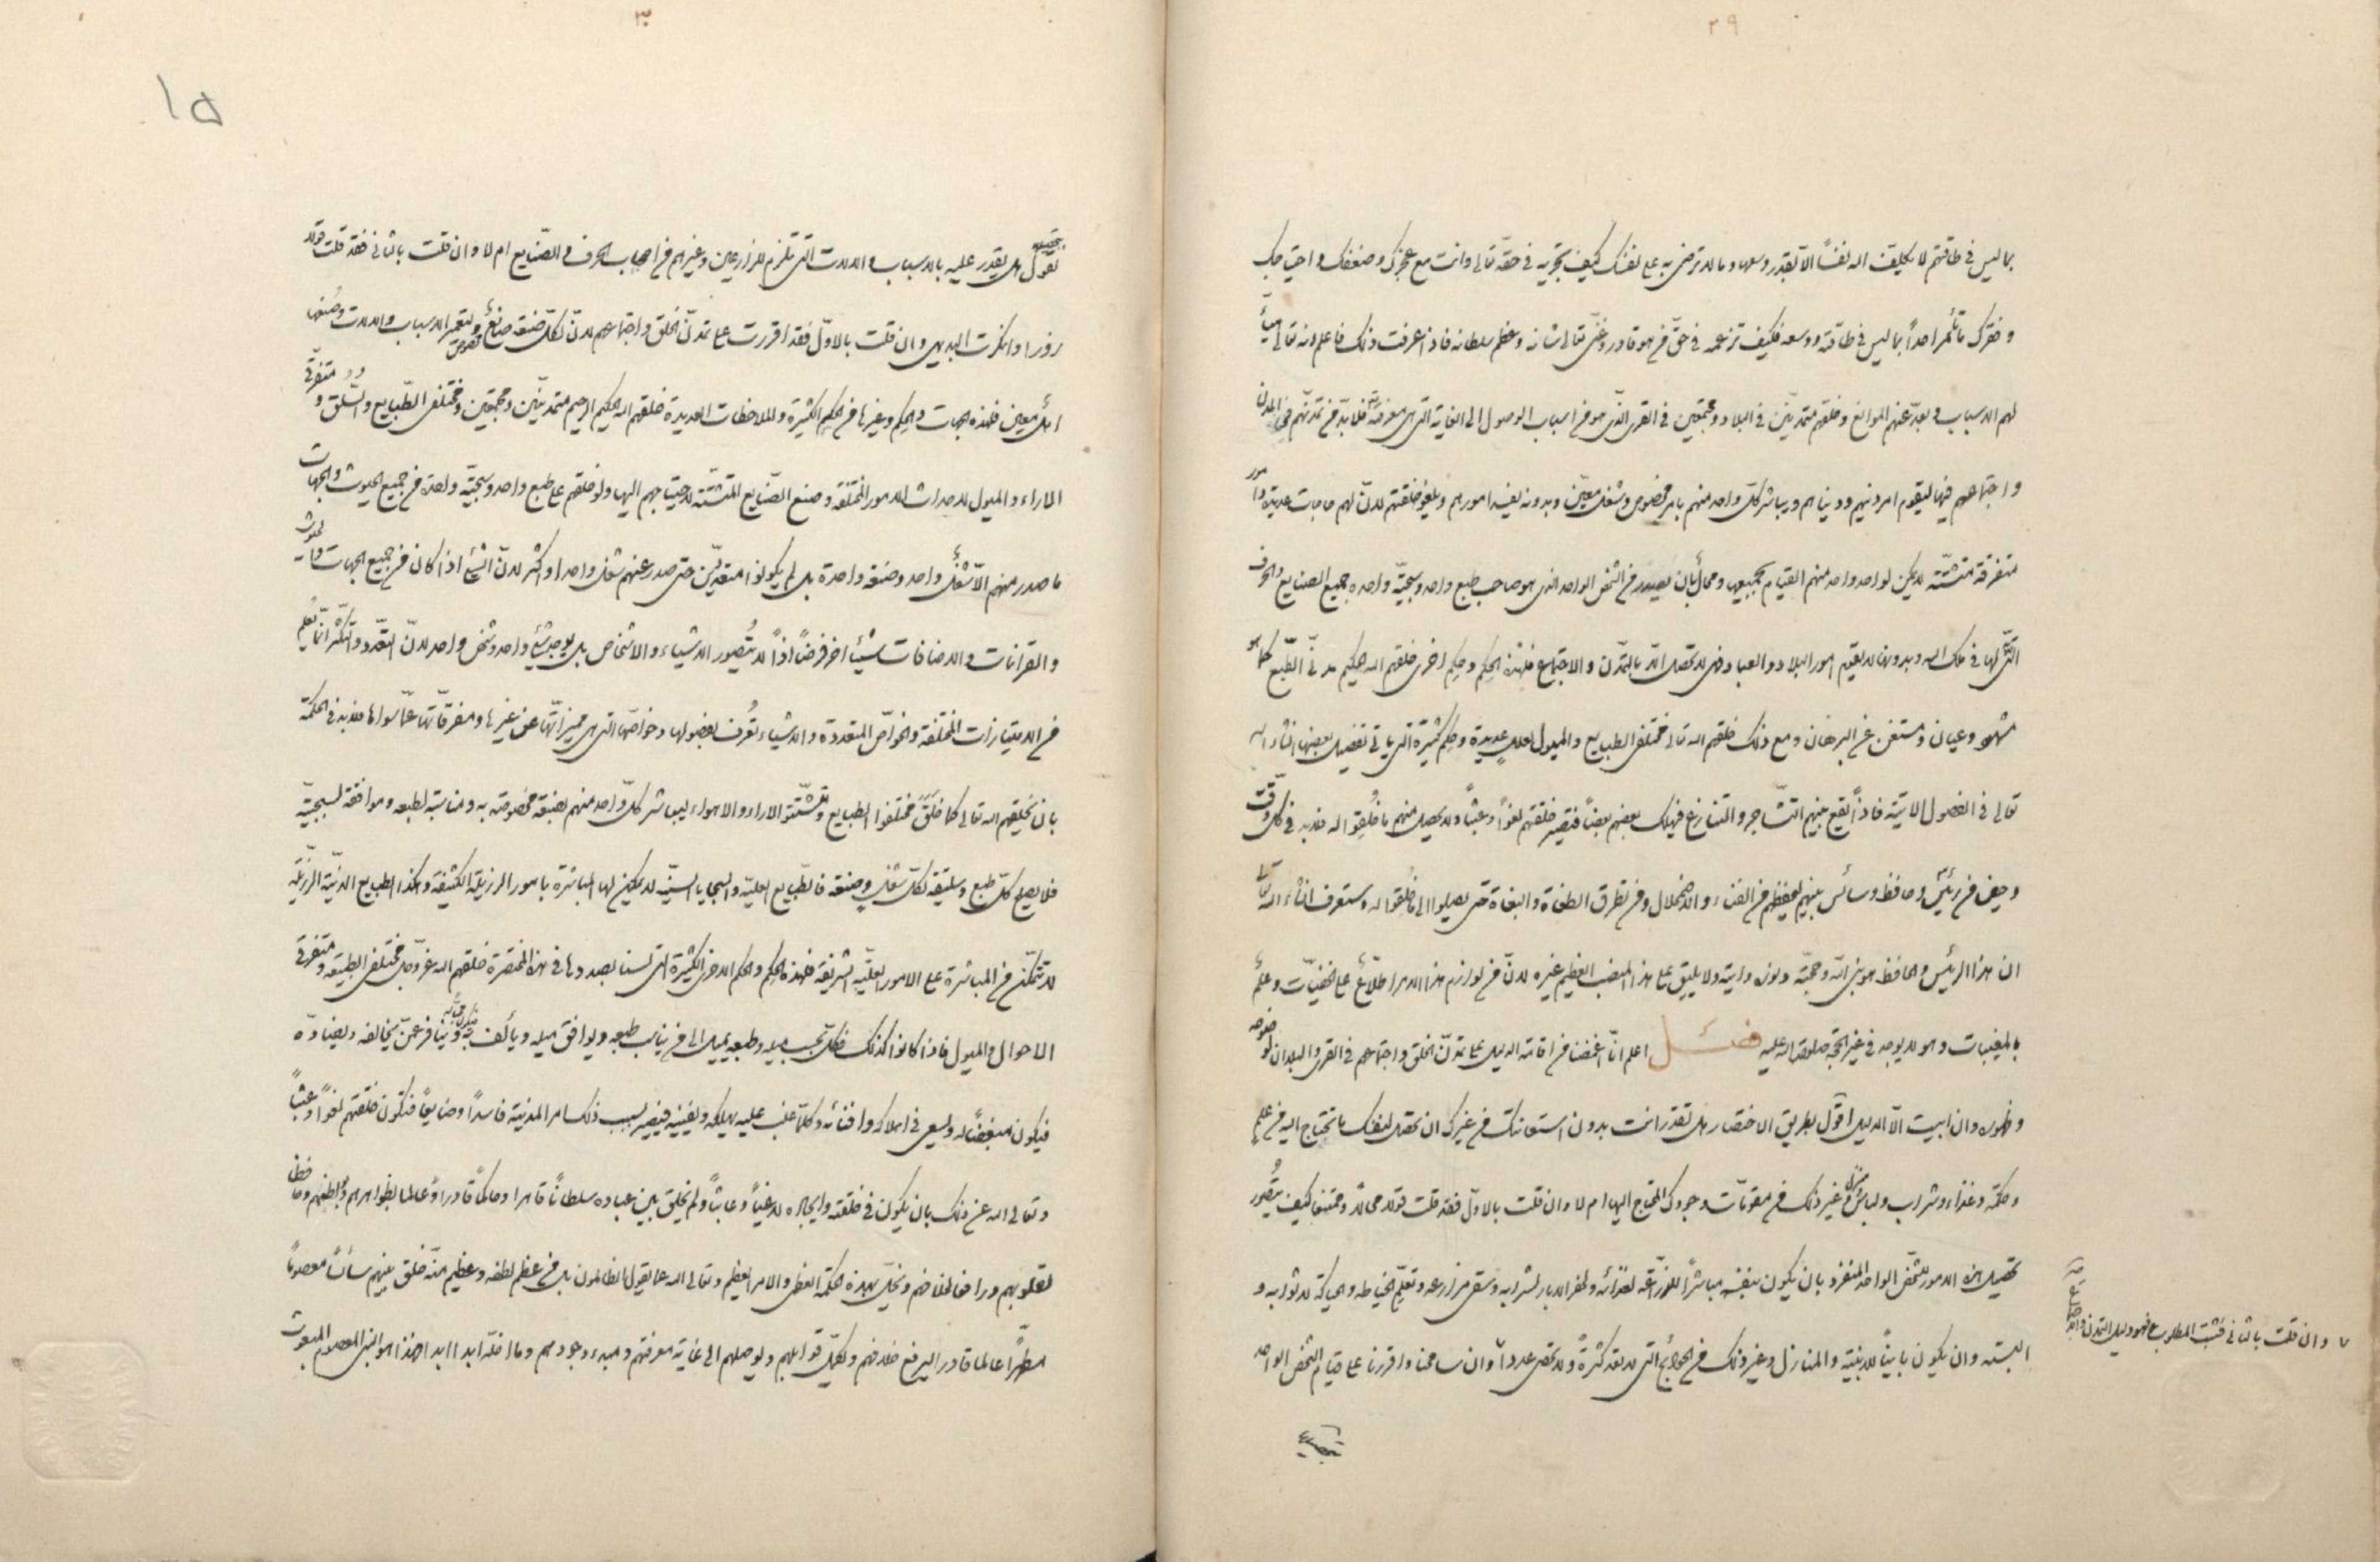 ٢٩
بما ليس في طاقتهم لا يكلّف الله نفساً الا بقدر وسعها وما لا ترضى به على نفسك كيف تجريه في حقّه تعالى وانت مع عجزك وضعفك واحتياجك
و فقرك ما تأمر احداً بما ليس في طاقته ووسعه فكيف تزعمه في حقّ من هو قادر وغنيّ تعالى شانه وعظم سلطانه فاذا عرفت ذلك فاعلم انه تعالى هيّأ
لهم الاسباب وبعّد عنهم الموانع وخلقهم متمدّنين في البلاد ومجتمعين في القرى الّذي هو من اسباب الوصول الى الغاية التي هي معرفته فلا بدّ من تمدّنهم في المدن
واجتماعهم فيها ليقوم امر دينهم ودنياهم ويباشر كلّ واحد منهم بامر مخصوص وشغل معيّن وبدونه يفسد امورهم ويلغو خلقتهم لانّ لهم حاجات عديدة وامور
متفرقة متشتّتة لا يمكن لواحد واحد منهم القيام بجميعها ومحال بان يصدر من الشخص الواحد الذي هو صاحب طبع واحد وسجيّة واحدة جميع الصنايع والحرف
الّتي لها في ملك الله وبدونها لا يقوم امور البلاد والعباد وهي لا تحصل الّا بالتمدّن والاجتماع فلهذه الحكم وحكم اخرى خلقهم الله الحكيم مدنيّ الطّبع كما هو
مشهود وعيان ومستغن عن البرهان ومع ذلك خلقهم الله تعالى مختلفي الطبايع والميول لعلل عديدة وحكم كثيرة التي ياتي تفصيل بعضها انشاء الله
تعالى في الفصول الاتية فاذاً يقع بينهم التّشاجر والتنازع فيهلك بعضهم بعضاً فتصير خلقتهم لغواً وعبثاً ولا يحصل منهم ما خُلِقوا له فلا بد في كل وقت
وحين من رئيس وحافظ وسائس بينهم ليحفظهم من الفناء والاضمحلال ومن تطرق الطغاة والبغاة حتى يصلوا الى ما خُلقوا له وستعرف انشاء الله تعالى
ان هذا الرئيس والحافظ هو نبيّ الله وحجّته ونوره وايته ولا يليق على هذا المنصب العظيم غيره لانّ من لوازم هذا الامر اطّلاع على الخفيّات وعلم
بالمغيبات وهو لا يوجد في غير الحجة صلوات الله عليه فصل اعلم انّا اغمضنا من اقامة الدليل على تمدّن الخلق واجتماعهم في القرى والبلدان لوضوحه
وظهوره وان ابيت الّا الدليل اقول بطريق الاختصار هل تقدر انت بدون استعانتك من غيرك ان تحصل لنفسك ما تحتاج اليه من علم
وحكمة وغذاء وشراب ولباس ومنزل وغير ذلك من مقوّمات وجودك المحتاج اليها ام لا وان قلت بالاوّل فقد قلت قولا محالاً وممتنعاً كيف يتصّور
تحصيل هذه الامور للشخص الواحد المنفرد بان يكون بنفسه مباشراً للزّراعة لغذائه ولحفر الابار لشرابه وسقي مزارعه وتعلّم الخياطة والحياكة لاثوابه و
البسته وان يكون بانياً للابنية والمنازل وغير ذلك من الحوائج التي لا تعد كثرةً ولا تحصى عدداً وان سامحنا واقررنا على قيام الشخص الواحد
وان قلت بالثاني فثبت المطلوب فهو دليل التمدن
٣٠
١٥
بتحصيله
نقول هل يقدر عليه بلا اسباب والات التي تلزم للزارعين وغيرهم من اصحاب الحرف والصّنايع ام لا وان قلت بالثاني فقد قلت قولا
زورا وانكرت البديهي وان قلت بالاوّل فقد اقررت على تمدّن الخلق واجتماعهم لانّ لكلّ صنعة صانع مخصوص ولتعمير الاسباب والالات وصنعها
اهل معين فلهذه الجهات والحِكم وغيرها من الحكم الكثيرة والملاحظات العديدة خلقهم الله الحكيم الرحيم متمدّنين ومجتمعين ومختلفي الطّبايع والسُّلق ومتفرّقي
الاراء والميول لاصدار الامور المختلفة وصنع الصّنايع المتشتّتة لاحتياجهم اليها ولو خلقهم على طبع واحد وسجيّة واحدة من جميع الحيوث والجهات
ما صدر منهم الّا شغل واحد وصنعة واحدة بل لم يكونوا متعدّدين حتى صدر عنهم شغل واحد او اكثر لانّ الشئ اذا كان من جميع الجهات والحيوث
والقرانات والاضافات شيئا اخر فرضاً اذاً لا يتُصور الاشياء والاشخاص بل يوجد شئ واحد وشخص واحد لانّ التعّدد والتكثّر انّما يُعلم
من الامتيازات المختلفة والخواصّ المتعددة والاشياء تُعرف بفصولها وخواصّها التي هي مميزاتّها عن غيرها ومفرقاتها عمّا سواها فلا بد في الحكمة
بان يخلقهم الله تعالى كما خلق مختلفوا الطبايع ومتشتّتوا الاراء والاهواء ليباشر كلّ واحد منهم بصنعة مخصوصة به ومناسبة لطبعه وموافقة لسجيّته
فلا يصلح كلّ طبع وسليقة لكلّ شغل وصنعة فالطّبايع العليّة والسجايا السنيّة لا يمكن لها المباشرة بامور الرزيلة الكثيفة وهكذا الطبايع الدنيّة الرّزيلة
لا تتمكّن من المباشرة على الامور العليّة الشريفة فلهذه الحِكم والحكم الاخرى الكثيرة التي لسنا بصددها في هذا المختصرة خلقهم الله عزّوجل مختلفي الطبيعة ومتفرقي
الاحوال والميول فاذا كانوا كذلك فكلّ بحسب ميله وطبعه يميل الى من يناسب طبعه ويوافق ميله ويألف به ويتنافر عمّن يخالفه ويضادّه
فيكون مبغضاً له ويسعى في اهلاكه وافنائه وكلّ ما غلب عليه يهلكه ويفنيه فيصير بسبب ذلك امر المدنية فاسداً وضايعاً فتكون خلقتهم لغواً وعبثاً
وتعالى الله عن ذلك بان يكون في خلقته وايجاده لاغياً وعابثاً ولم يخلق بين عباده سلطاناً قاهرا وحاكماً قادراً وعالما بظواهرهم وبواطنهم وحافظا
لقلوبهم ورافعا لخلافهم ويخلّ بهذه الحكمة العظمى والامر العظيم وتعالى الله عما يقول الظالمون بل من عظم لطفه وعظيم منّه خلق بينهم سائساً معصوماً
مطهّراً عالما قادرا ليرفع خلافهم ويكمّل قوابلهم ويوصلهم الى غاية معرفتهم ومبدء وجودهم وما اخلّه ابدا ابدا وهذا هو النبي المعصوم المبعوث